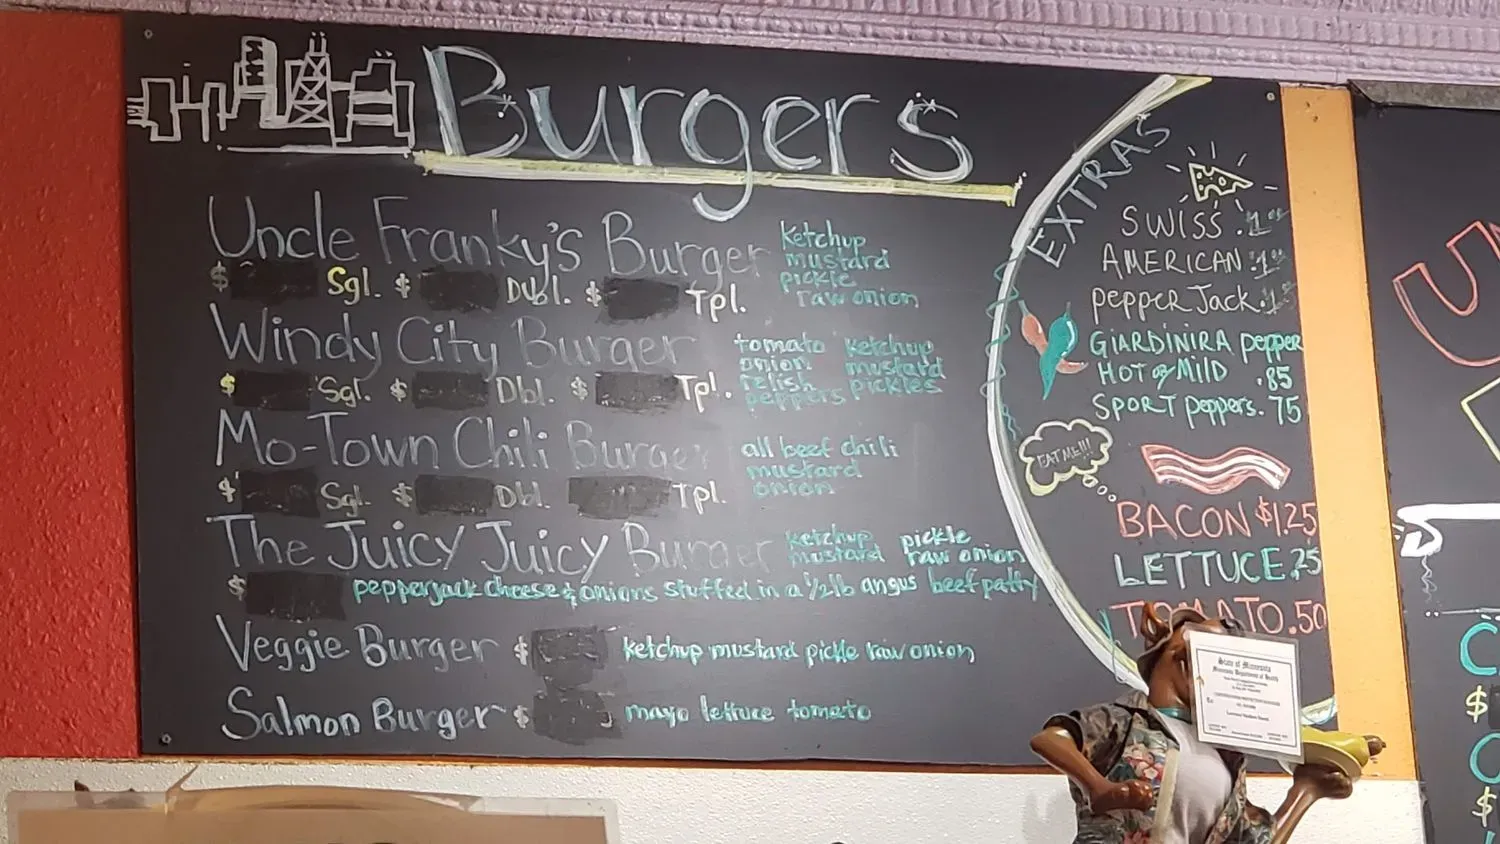 Burgers
Uncle Franky's Burger
$ Sgl. $ Dubl. $ Tpl.
ketchup
mustard
pickle
raw onion
Windy City Burger
$ Sgl. $ Dbl. $ Tpl.
tomato ketchup
onion mustard
relish pickles
peppers
Mo-Town Chili Burger
$ Sgl. $ Dbl. Tpl.
all beef chili
mustard
onion
The Juicy Juicy Burger
ketchup pickle
mustard raw onion
$ pepperjack cheese & onions stuffed in a 1/2 lb angus beef patty
Veggie Burger $ ketchup mustard pickle raw onion
Salmon Burger $ mayo lettuce tomato
EXTRAS
SWISS
AMERICAN
pepper Jack
GIARDINIRA pepper
HOT or MILD .85
SPORT peppers .75
EAT ME!!!
BACON $1.25
LETTUCE .25
TOMATO .50
State of Minnesota
Minnesota Department of Health